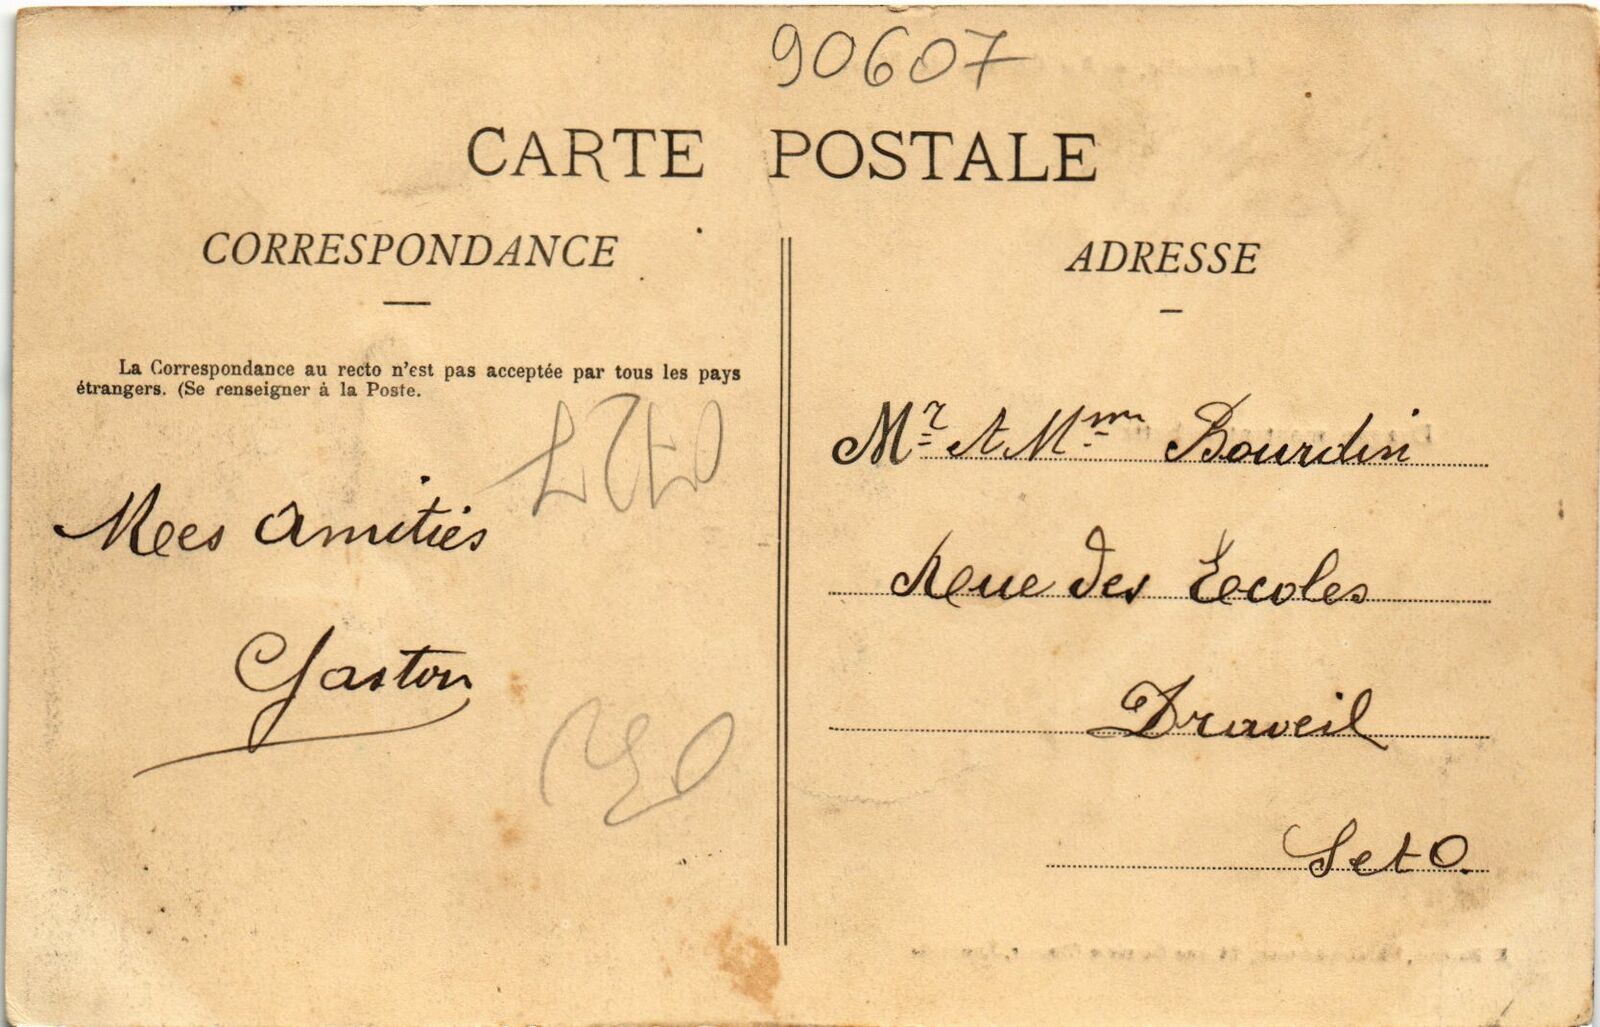 90607
CARTE POSTALE
CORRESPONDANCE
La Correspondance au recto n'est pas acceptée par tous les pays
étrangers. (Se renseigner à la Poste.
Mes amitiés
Gaston
ADRESSE
Mr et Mme Bourdin
Rue des Ecoles
Draveil
S et O.